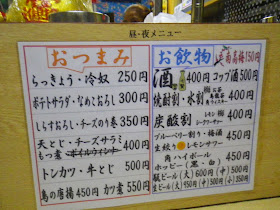 昼・夜メニュー
おつまみ
らっきょう・冷奴 250円
ポテトサラダ・なめこおろし 300円
しらすおろし・チーズのり巻 350円
天とじ・チーズサラミ
もつ煮・ボイルウィンナー 400円
トンカツ・牛とじ 500円
鳥の唐揚 450円 カツ煮 550円
お飲物
南高梅 150円
酒 400円 コップ酒 500円
焼酎割・水割 400円
炭酸割 400円
ブルーベリー割り・梅酒 450円
生絞り レモンサワー
角ハイボール 450円
ホッピー(黒・白)
瓶ビール(大) 600円 (中) 500円
生ビール(大) 950円 (中) 500円 (小) 450円